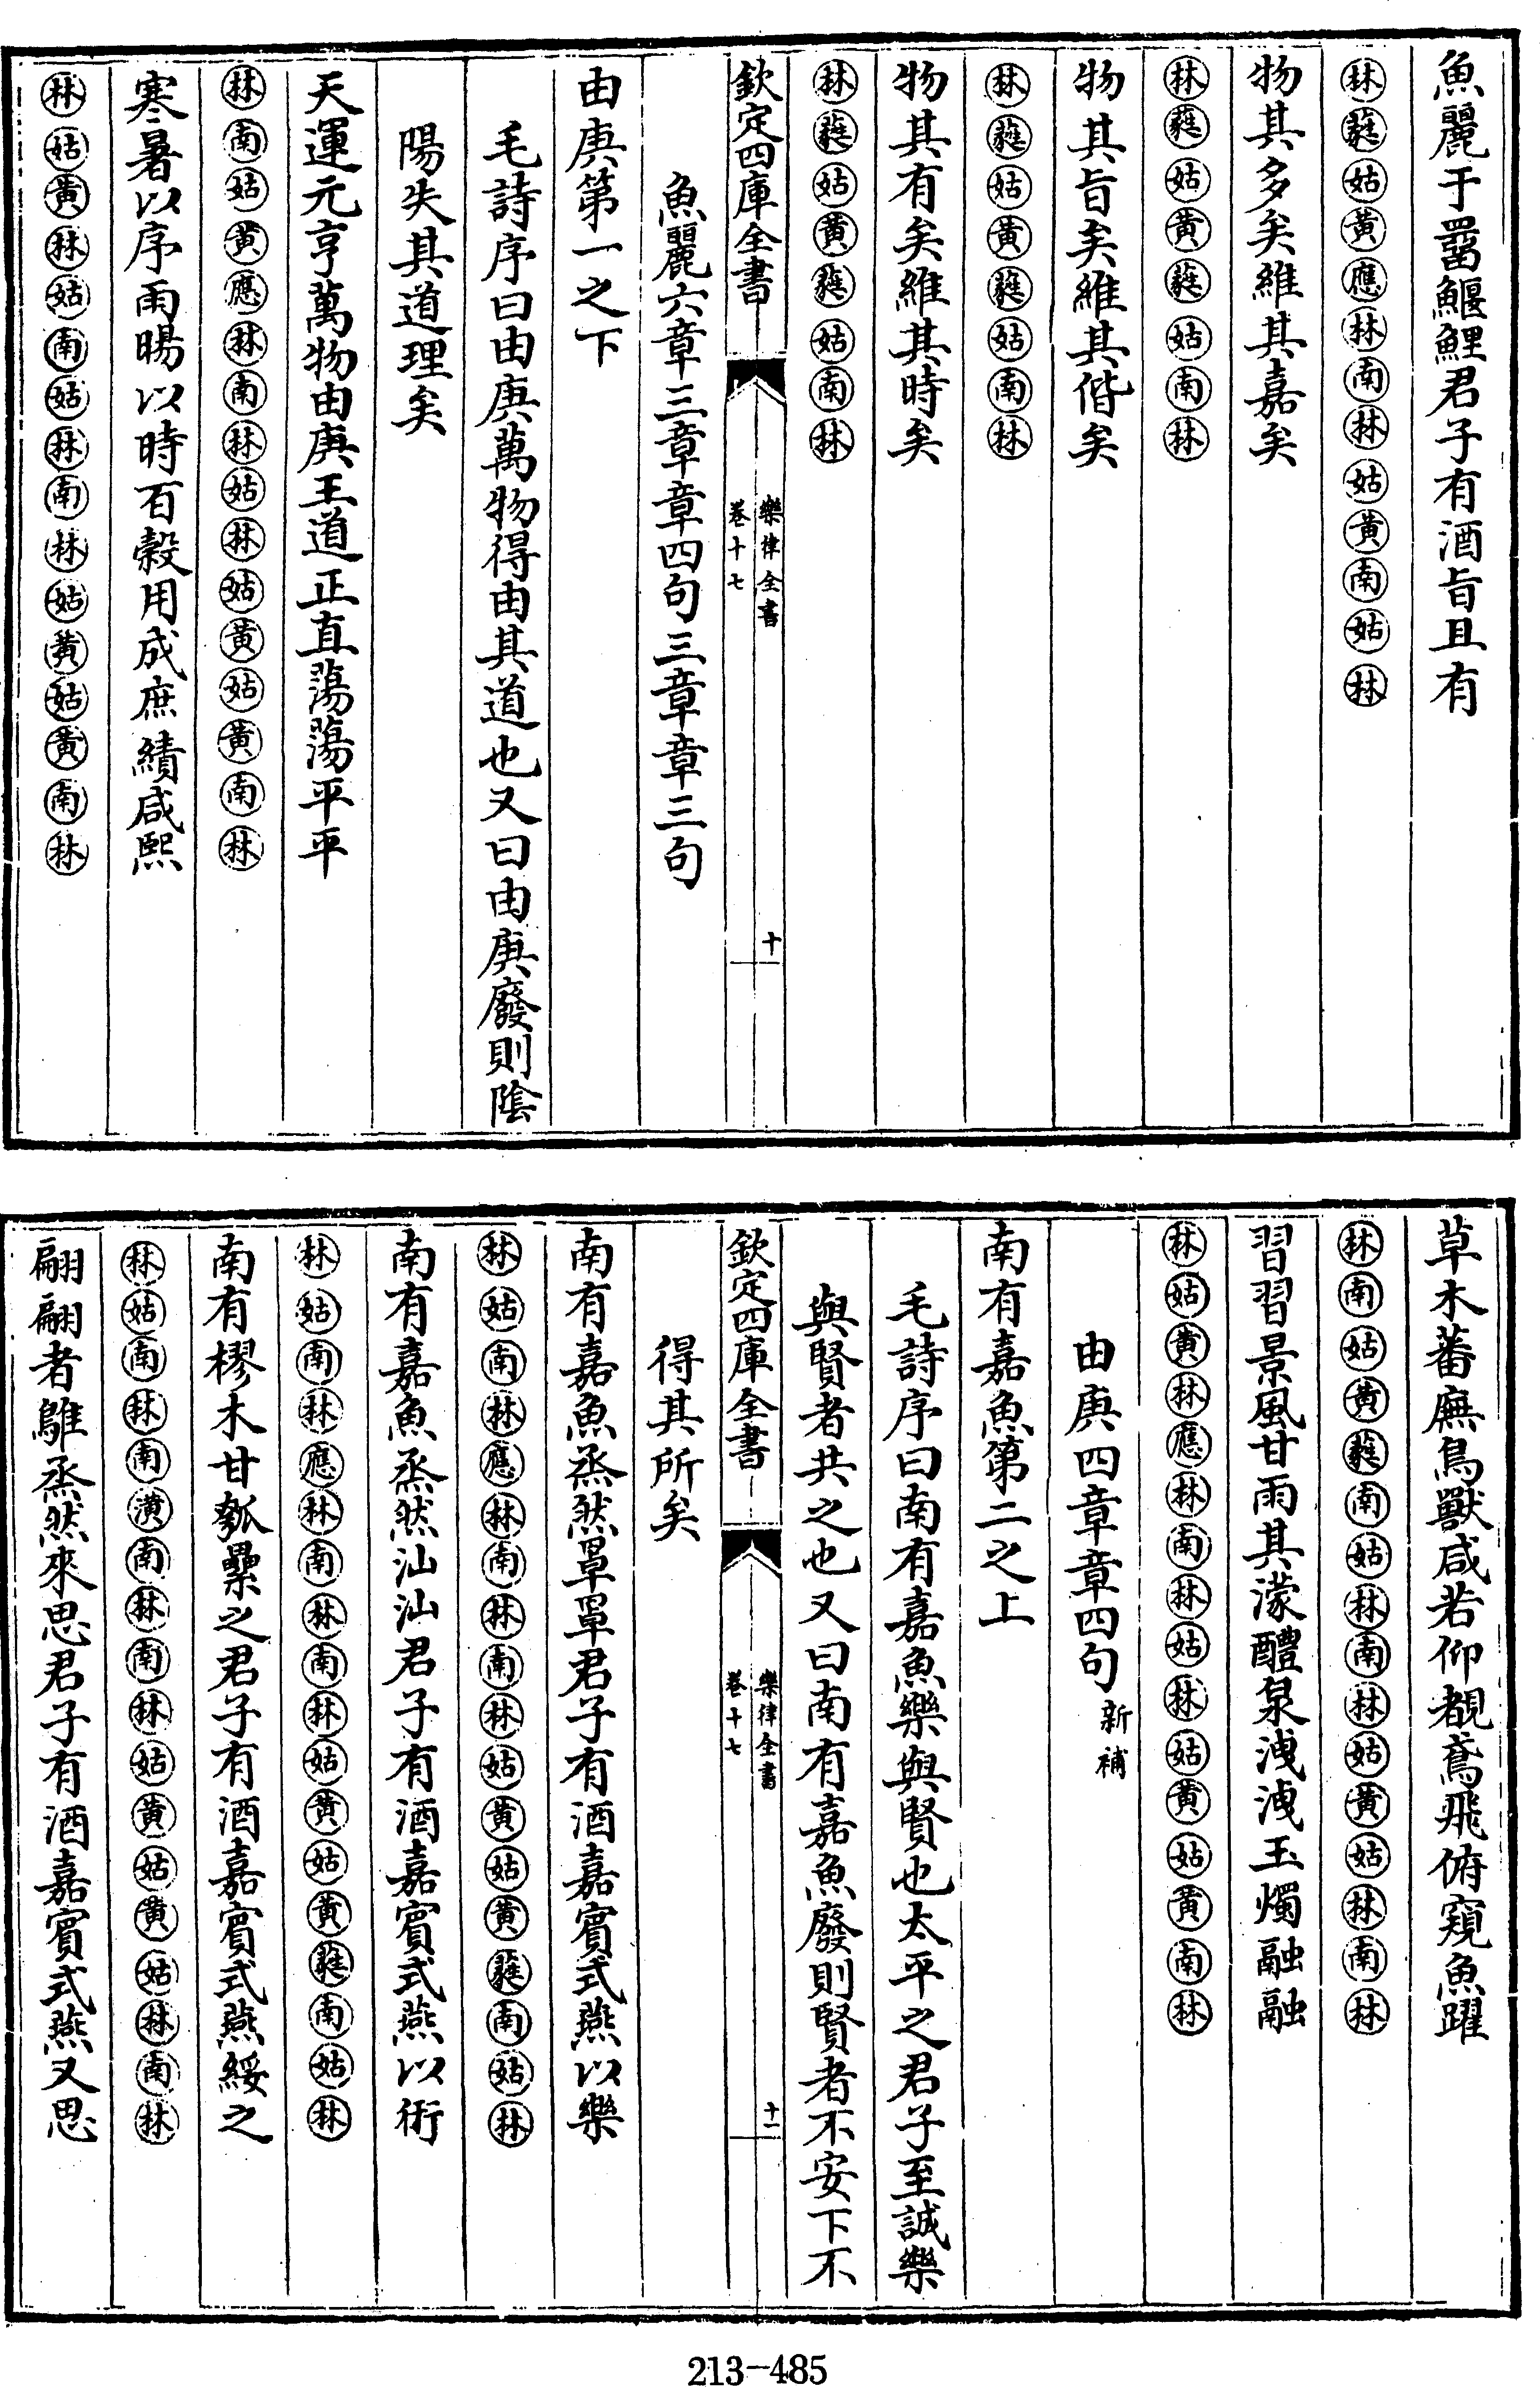 魚麗于罶鰋鯉君子有酒旨且有
林蕤姑黃應林南林姑黃南姑林
物其多矣維其嘉矣
林蕤姑黃蕤姑南林
物其旨矣維其偕矣
林蕤姑黃蕤姑南林
物其有矣維其時矣
林蕤姑黃蕤姑南林
欽定四庫全書
樂律全書
卷十七
十
魚麗六章三章章四句三章章三句
由庚第一之下
毛詩序曰由庚萬物得由其道也又曰由庚廢則陰
陽失其道理矣
天運元亨萬物由庚王道正直蕩蕩平平
林南姑黃應林南林姑林姑黃姑黃南林
寒暑以序雨暘以時百穀用成庶績咸熙
林姑黃林姑南姑林南林姑黃姑黃南林
草木蕃廡鳥獸咸若仰覩鳶飛俯窺魚躍
林南姑黃蕤南姑林南林姑黃姑林南林
習習景風甘雨其濛醴泉洩洩玉燭融融
林姑黃林應林南林姑林姑黃姑黃南林
由庚四章章四句新補
南有嘉魚第二之上
毛詩序曰南有嘉魚樂與賢也太平之君子至誠樂
與賢者共之也又曰南有嘉魚廢則賢者不安下不
欽定四庫全書
樂律全書
卷十七
十一
得其所矣
南有嘉魚烝然罩罩君子有酒嘉賓式燕以樂
林姑南林應林南林南林姑黃姑黃蕤南姑林
南有嘉魚烝然汕汕君子有酒嘉賓式燕以衎
林姑南林應林南林南林姑黃姑黃蕤南姑林
南有樛木甘瓠纍之君子有酒嘉賓式燕綏之
林姑南林南潢南林南林姑黃姑黃姑林南林
翩翩者鵻烝然來思君子有酒嘉賓式燕又思
213-485